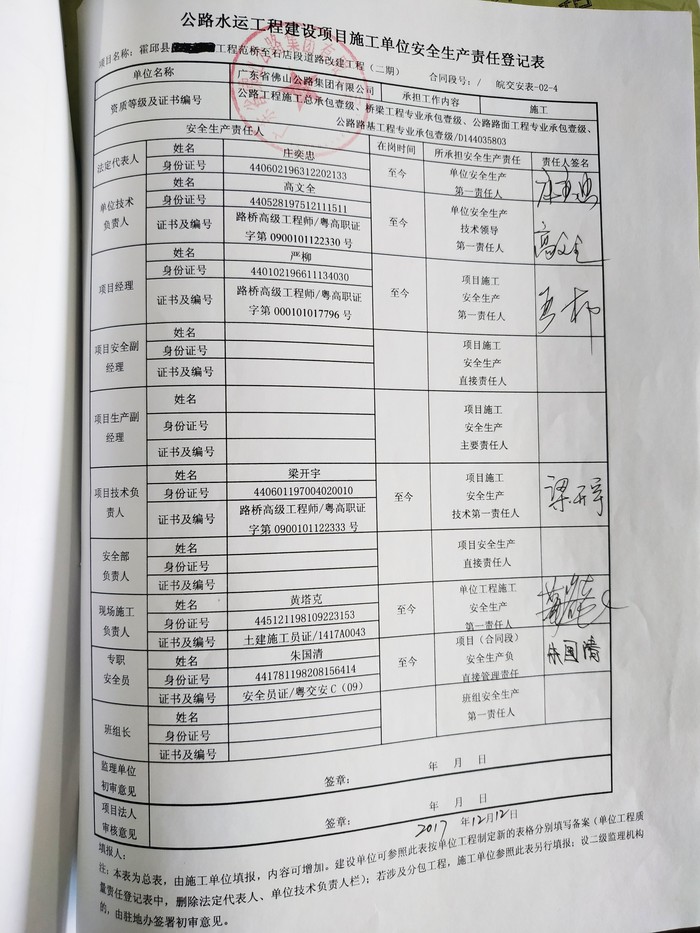 公路水运工程建设项目施工单位安全生产责任登记表
项目名称：霍邱县 工程范桥至石店段道路改建工程（二期） 合同段号：/ 皖交安表-02-4
单位名称 广东省佛山公路集团有限公司 承担工作内容 施工
资质等级及证书编号 公路工程施工总承包壹级、桥梁工程专业承包壹级、公路路面工程专业承包壹级、
公路路基工程专业承包壹级/D144035803
安全生产责任人 在岗时间 所承担安全生产责任 责任人签名
法定代表人 姓名 庄奕忠 至今 单位安全生产
第一责任人
身份证号 440602196312202133
单位技术
负责人 姓名 高文全 至今 单位安全生产
技术领导
第一责任人 高文全
身份证号 440528197512111511
证书及编号 路桥高级工程师/粤高职证
字第 0900101122330 号
项目经理 姓名 严柳 至今 项目施工
安全生产
第一责任人
身份证号 440102196611134030
证书及编号 路桥高级工程师/粤高职证
字第 000101017796 号
项目安全副
经理 姓名 项目施工
安全生产
直接责任人
身份证号
证书及编号
项目生产副
经理 姓名 项目施工
安全生产
主要责任人
身份证号
证书及编号
项目技术负
责人 姓名 梁开宇 至今 项目施工
安全生产
技术第一责任人 梁开宇
身份证号 440601197004020010
证书及编号 路桥高级工程师/粤高职证
字第 0900101122333 号
安全部
负责人 姓名 项目安全生产
直接责任人
身份证号
证书及编号
现场施工
负责人 姓名 黄塔克 至今 单位工程施工
安全生产
第一责任人
身份证号 445121198109223153
证书及编号 土建施工员证/1417A0043
专职
安全员 姓名 朱国清 至今 项目（合同段）
安全生产负
直接管理责任 朱国清
身份证号 441781198208156414
证书及编号 安全员证/粤交安 C（09）
班组长 姓名 班组安全生产
第一责任人
身份证号
证书及编号
监理单位
初审意见 签章： 年 月 日
项目法人
审核意见 签章： 2017 年 12 月 12 日
填报人：
注：本表为总表，由施工单位填报，内容可增加。建设单位可参照此表按单位工程制定新的表格分别填写备案（单位工程质
量责任登记表中，删除法定代表人、单位技术负责人栏）；若涉及分包工程，施工单位参照此表另行填报；设二级监理机构
的，由驻地办签署初审意见。